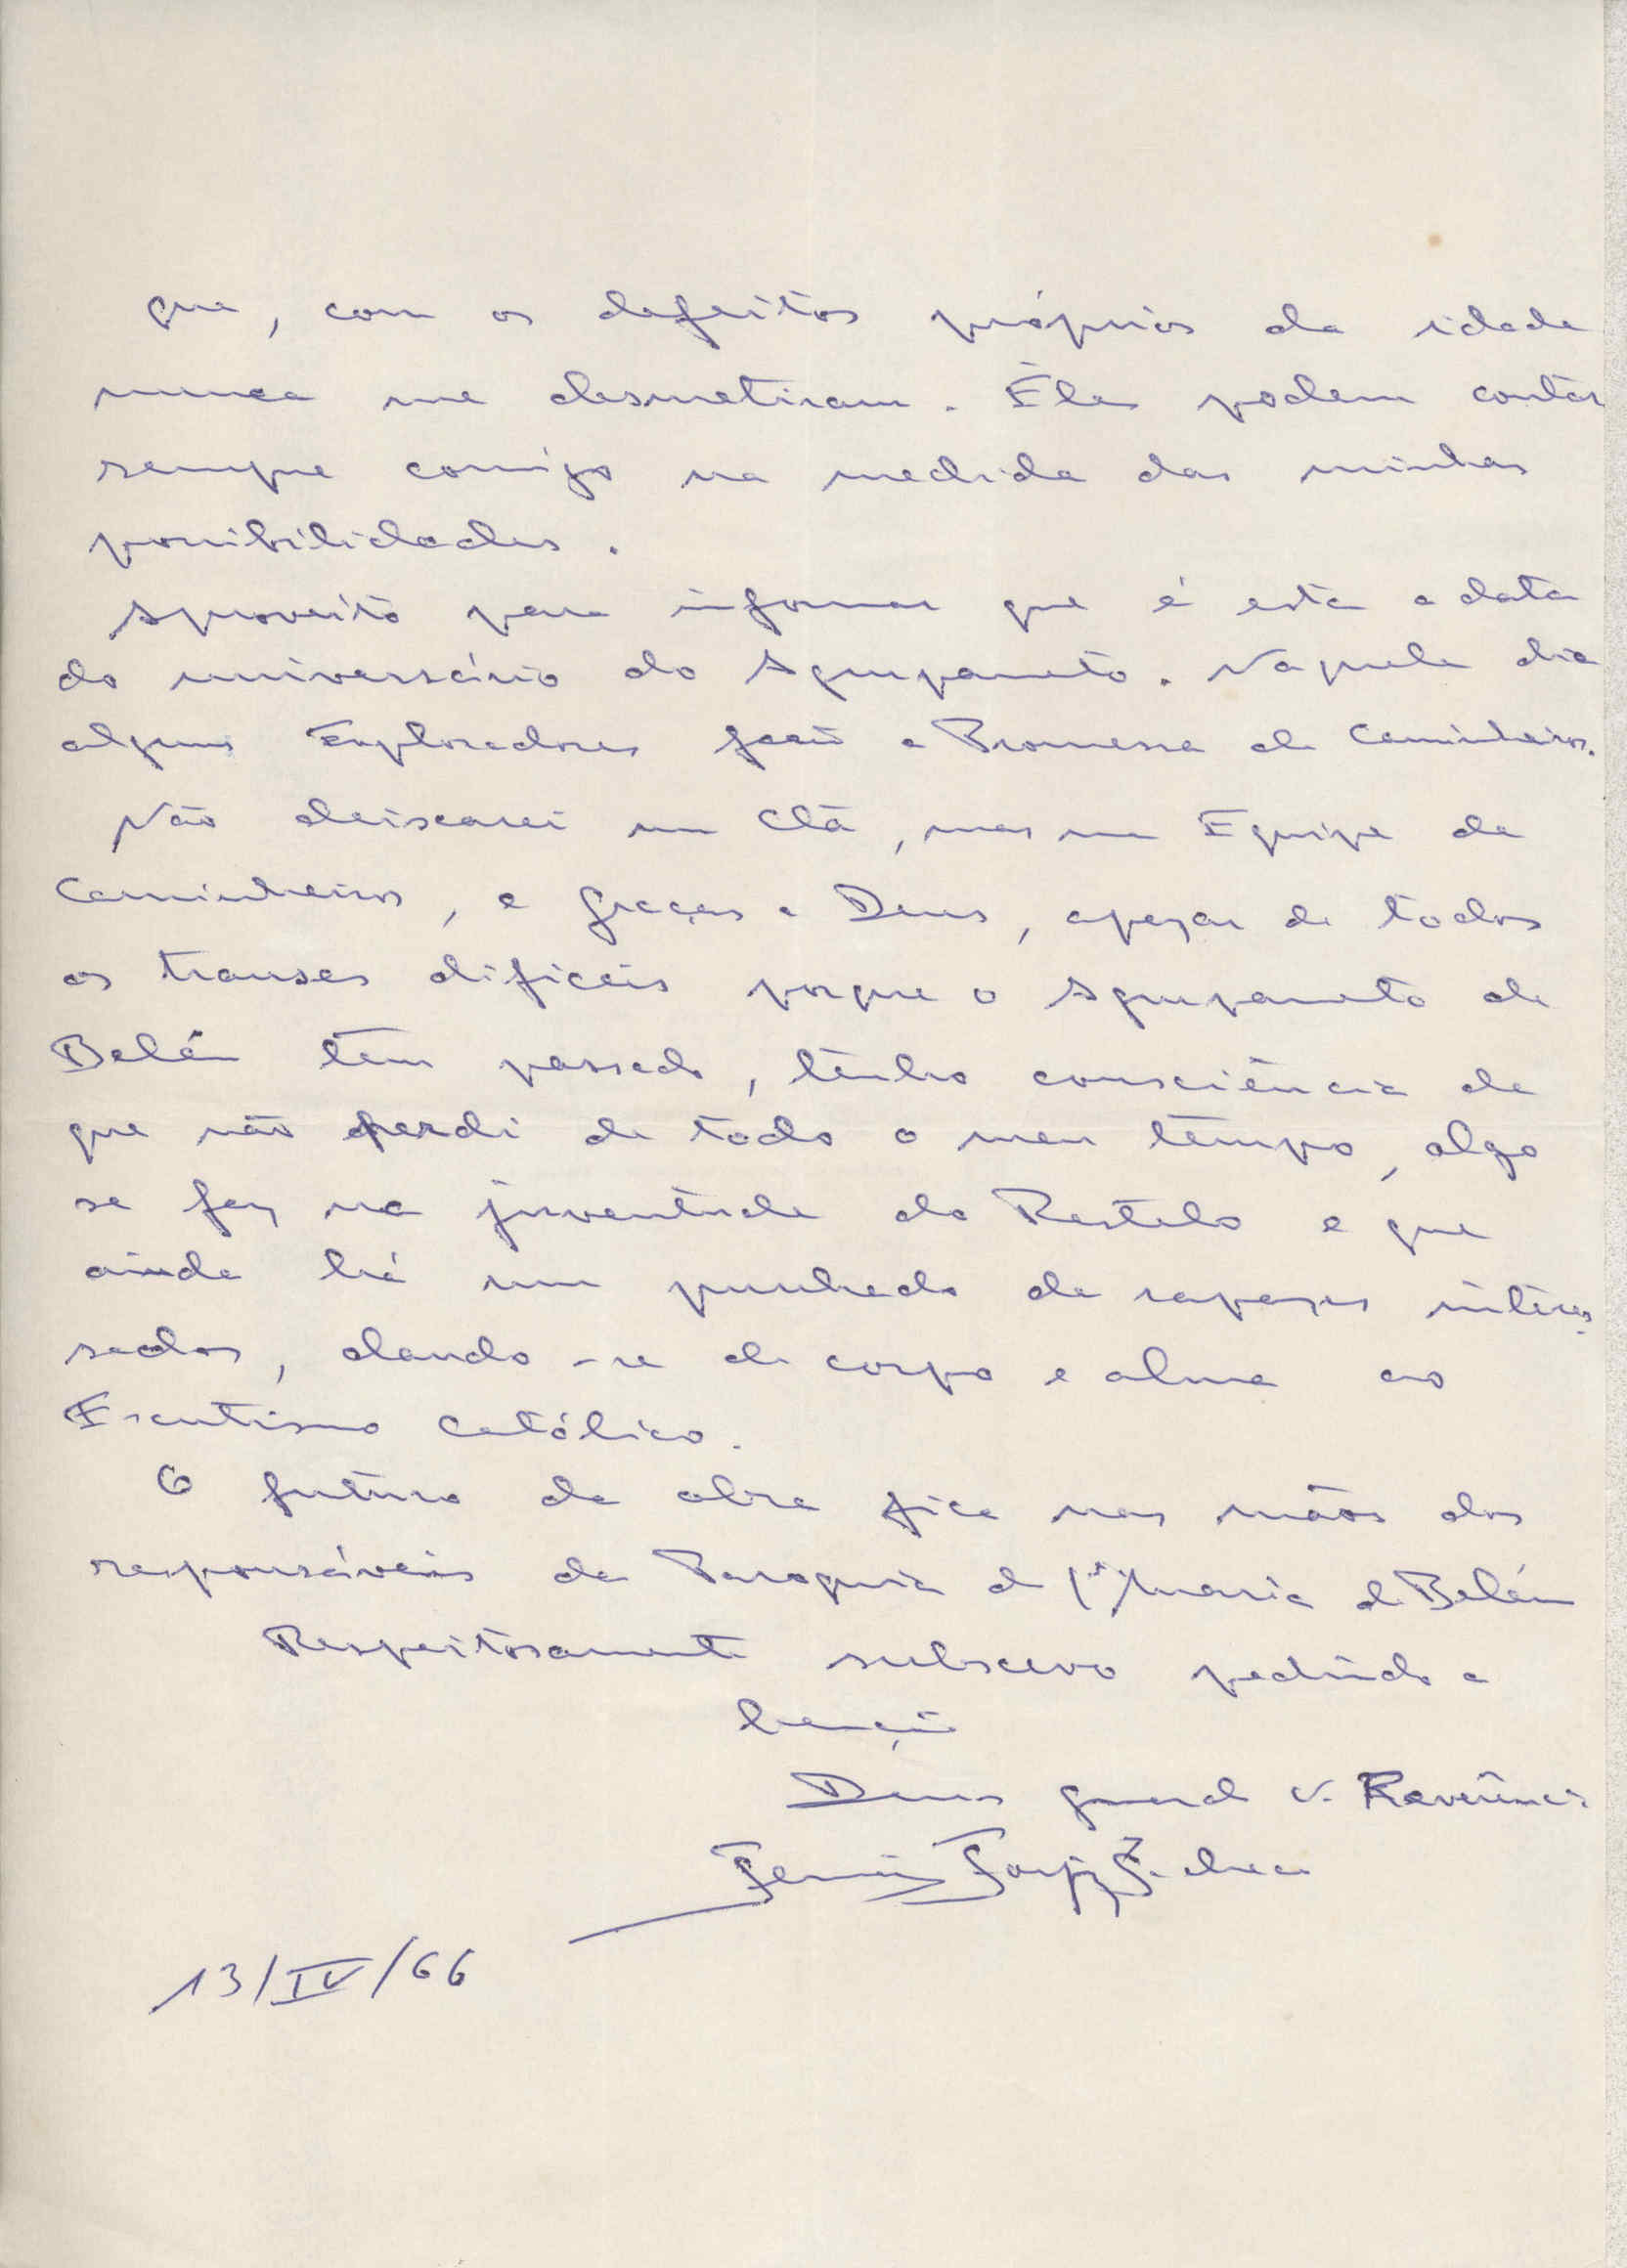 que, com os defeitos próprios da idade
nunca me desmetiram. Êles podem contar
sempre comigo na medida das minhas
possibilidades.
Aproveito para informar que é esta a data
do universário do Agrupamento. Naquele dia
alguns Exploradores farão a Promessa de Caminheiros.
Não deixarei um Clã, mas uma Equipe de
Caminheiros, e graças a Deus, apezar de todos
os transes dificeis porque o Agrupamento de
Belém tem passado, tenho consciência de
que não perdi de todo o meu tempo, algo
se fez na juventude do Restelo e que
ainda há um punhado de rapazes interes-
sados, dando-se de corpo e alma ao
Escutismo Católico.
O futuro da obra fica nas mãos dos
responsáveis da Paroquia de Sta Maria de Belém
Respeitosamente subscrevo pedindo a
benção
Deus guarde V. Reverência
13/IV/66